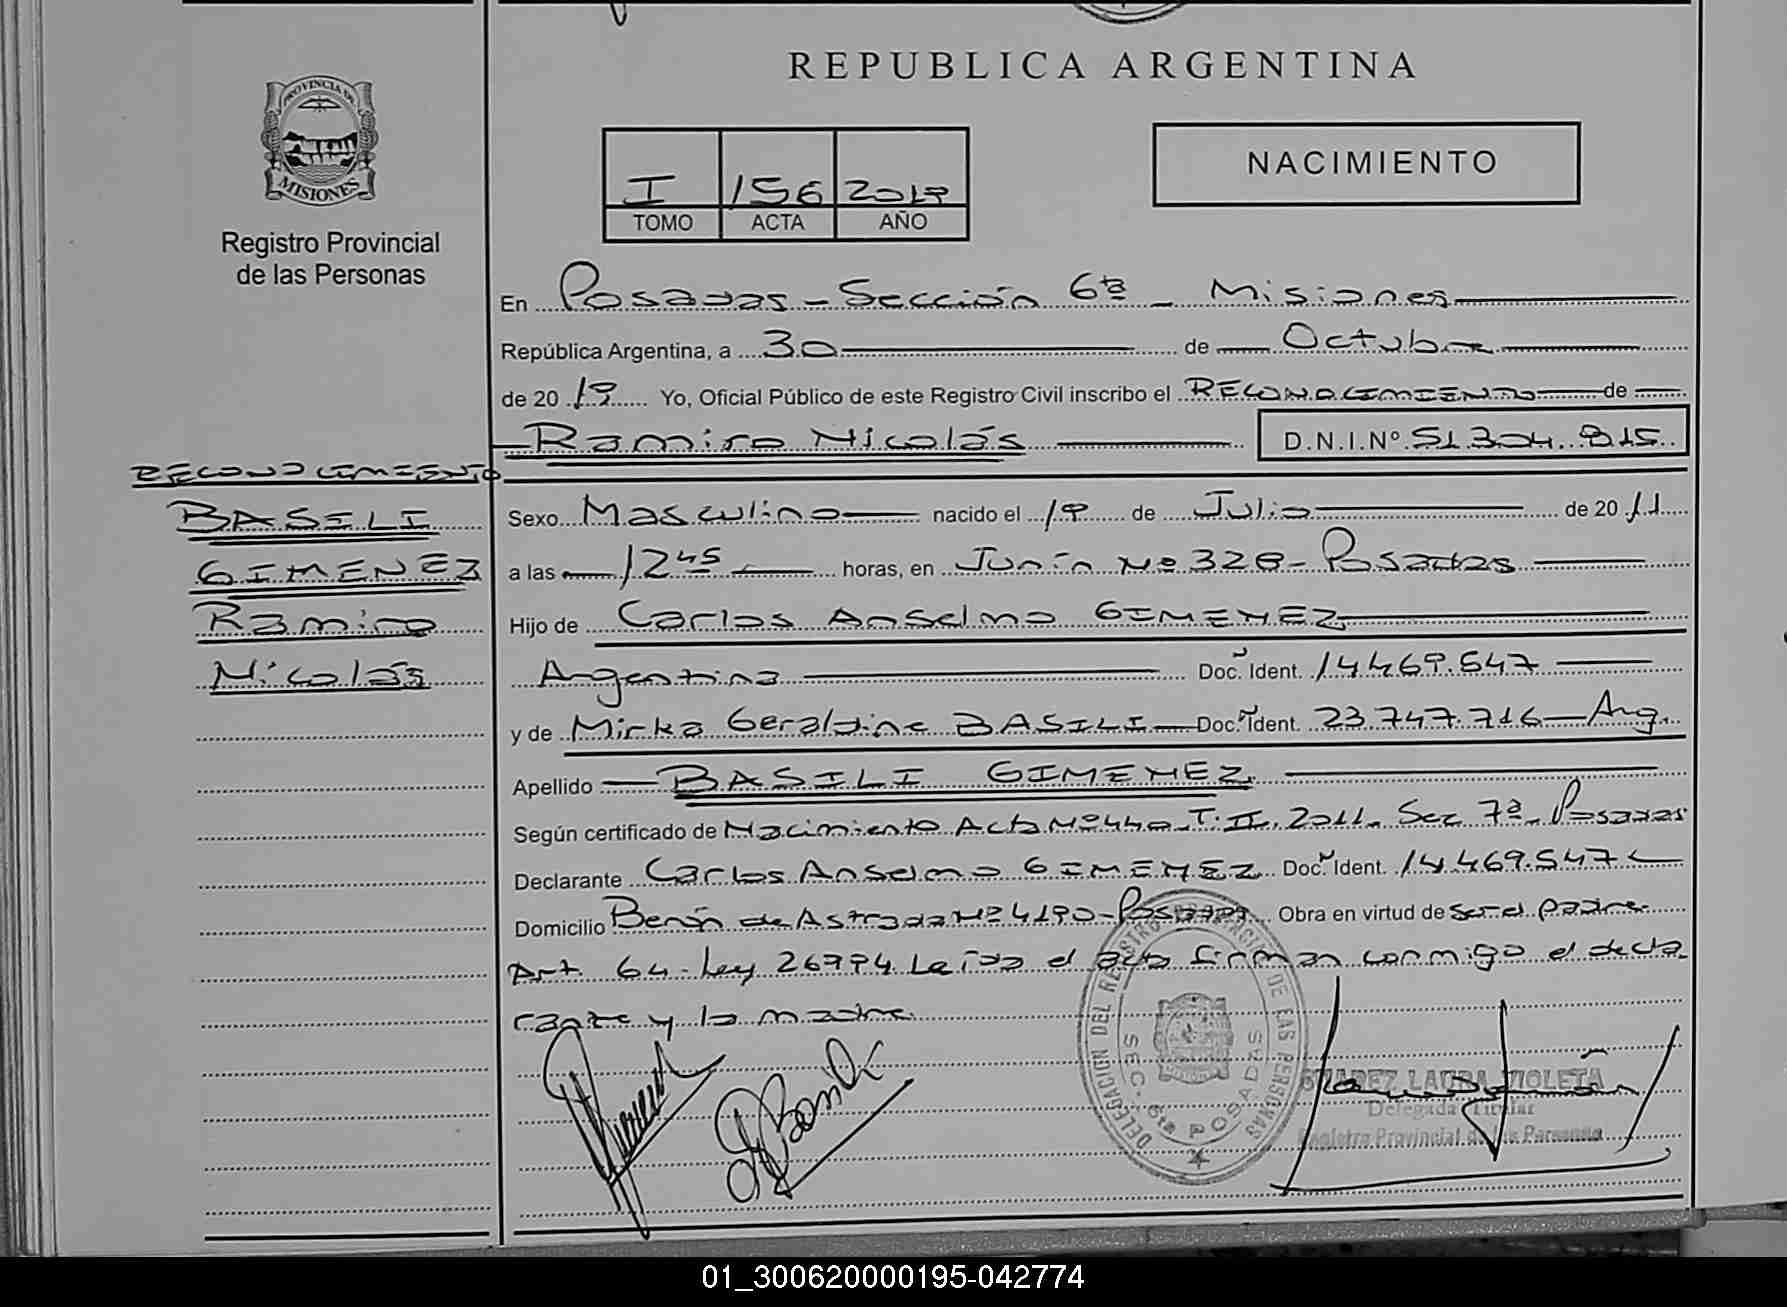 REPUBLICA ARGENTINA
PROVINCIA DE
MISIONES
Registro Provincial
de las Personas
I 156 2019
TOMO ACTA AÑO
NACIMIENTO
En Posadas - Sección 6ta - Misiones
República Argentina, a 30 de Octubre
de 2019 Yo, Oficial Público de este Registro Civil inscribo el RECONOCIMIENTO de
Ramiro Nicolás D.N.I.Nº 51.304.815
RECONOCIMIENTO
BASILI
GIMENEZ
Ramiro
Nicolás
Sexo Masculino nacido el 19 de Julio de 2011
a las 12 45 horas, en Junín Nº 328 - Posadas
Hijo de Carlos Anselmo GIMENEZ
Argentina Doc. Ident. 14.469.547
y de Mirka Geraldine BASILI Doc. Ident. 23.747.716 - Arg.
Apellido BASILI GIMENEZ
Según certificado de Nacimiento Acta Nº 440 - T. II. 2011 - Sec 7ª - Posadas
Declarante Carlos Anselmo GIMENEZ Doc. Ident. 14.469.547
Domicilio Berón de Astrada Nº 4190 - Posadas Obra en virtud de ser el padre.
Art. 64 - Ley 26994 Leída el acta firman conmigo el decla
rante y la madre.
DELEGACION DEL REGISTRO PROVINCIAL DE LAS PERSONAS
SEC. 6ta POSADAS
SUAREZ LAURA VIOLETA
Delegada Titular
Registro Provincial de las Personas
01_300620000195-042774